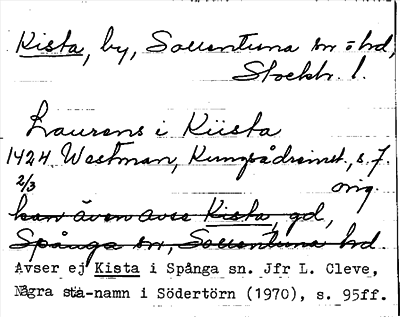 Kista, by, Sollentuna sn o hd,
Stockh. l.
Laurens i Kiista
1424 Westman, Kungsådrainst., s. 7.
2/3 orig.
kan även avse Kista, gd,
Spånga sn, Sollentuna hd.
Avser ej Kista i Spånga sn. Jfr L. Cleve,
Några sta-namn i Södertörn (1970), s. 95ff.